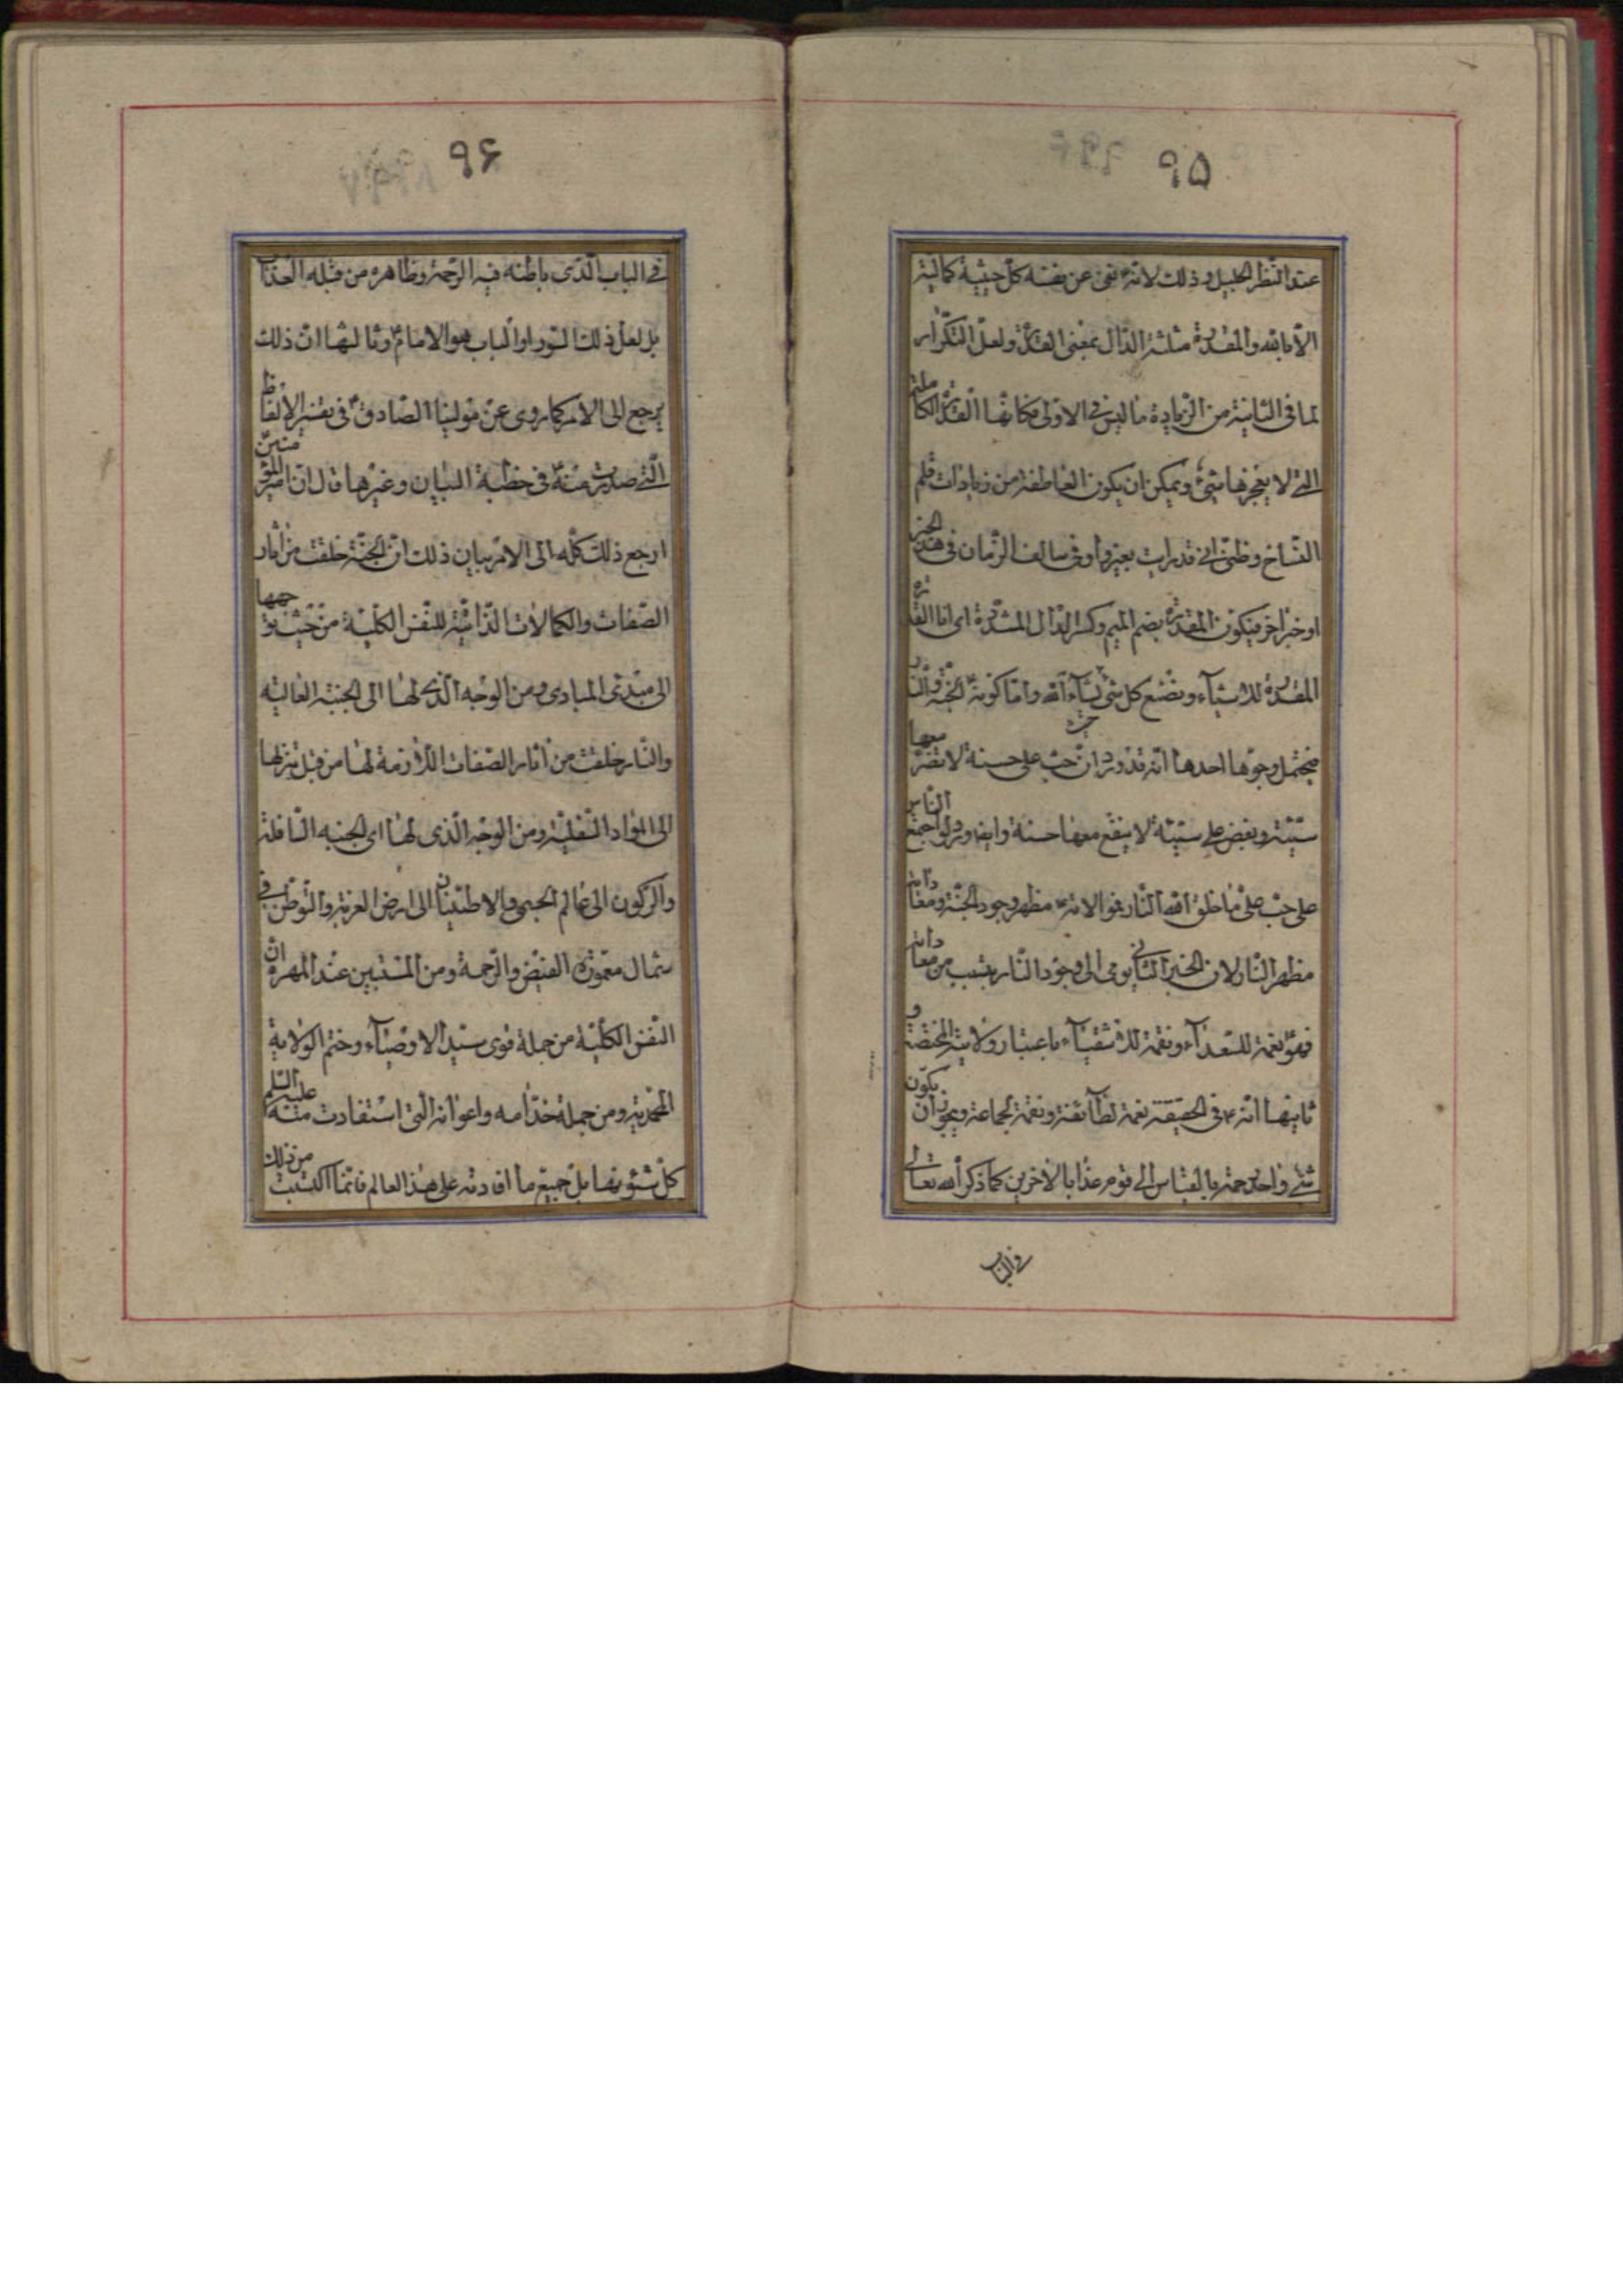 ٩٥
عند النظر الجليل وذلك لانه نفى عن نفسه كل حيثية كمالية
الا بالله والمقدرة مثلثة الدال بمعنى القدرة ولعل التكرار
لما في الثانية من الزيادة ما ليس في الاولى فكانها القدرة الكاملة
التي لا يعجزها شيء ويمكن ان يكون العاطفة من زيادات قلم
النساخ وظني اني قد رايت بغير واو في سالف الزمان في هذا الخبر
او خبر اخر فيكون المقدرة بضم الميم وكسر الدال المشددة اي انا القدرة
المقدرة للاشياء وتضع كل شيء لشاء الله واما كونه الجنة والنار
فيحتمل وجوها احدها انه قد ورد ان حب علي حسنة لا تضر معها
سيئة وبغض علي سيئة لا ينفع معها حسنة وايضا ورد لو اجمع الناس
على حب علي ما خلق الله النار فموالاته مظهر وجود الجنة ومعاداته
مظهر النار لان الخبر الثاني يومي الى وجود النار بسبب من معاداته
فهو نعمة للسعداء ونقمة للاشقياء باعتبار ولايته المختصة و
ثانيها انه في الحقيقة نعمة لطائفة ونقمة لجماعة ويجوز ان يكون
شيء واحد رحمة بالقياس الى قوم عذابا لاخرين كما ذكر الله تعالى
في الباب
٩٦
في الباب الذي باطنه فيه الرحمة وظاهره من قبله العذاب
بل لعل ذلك السور او الباب هو الامام وثالثها ان ذلك
يرجع الى الامر كما روى عن مولينا الصادق في تفسير الالفاظ
التي صدرت منه في خطبة البيان وغيرها قال ان امير المؤمنين
ارجع ذلك كله الى الامر بيان ذلك ان الجنة خلقت من اثار
الصفات والكمالات الذاتية للنفس الكلية من حيث توجهها
الى مبدئ المبادي ومن الوجه الذي لها الى الجنبة العالية
والنار خلقت من اثار الصفات اللازمة لها من قبل تنزلها
الى المواد السفلية ومن الوجه الذي لها اى الجنبه السافلة
والركون الى عالم الحسي والاطمينان الى ارض الغربة والتوطن في
شمال معمورة الفيض والرحمة ومن المستبين عند المهرة ان
النفس الكلية من جملة قوى سيد الاوصياء وختم الولاية
المحمدية ومن جملة خدامه واعوانه التي استفادت منه عليه السلم
كل شئونها بل جميع ما افادته على هذا العالم فانما اكتسبت من ذلك